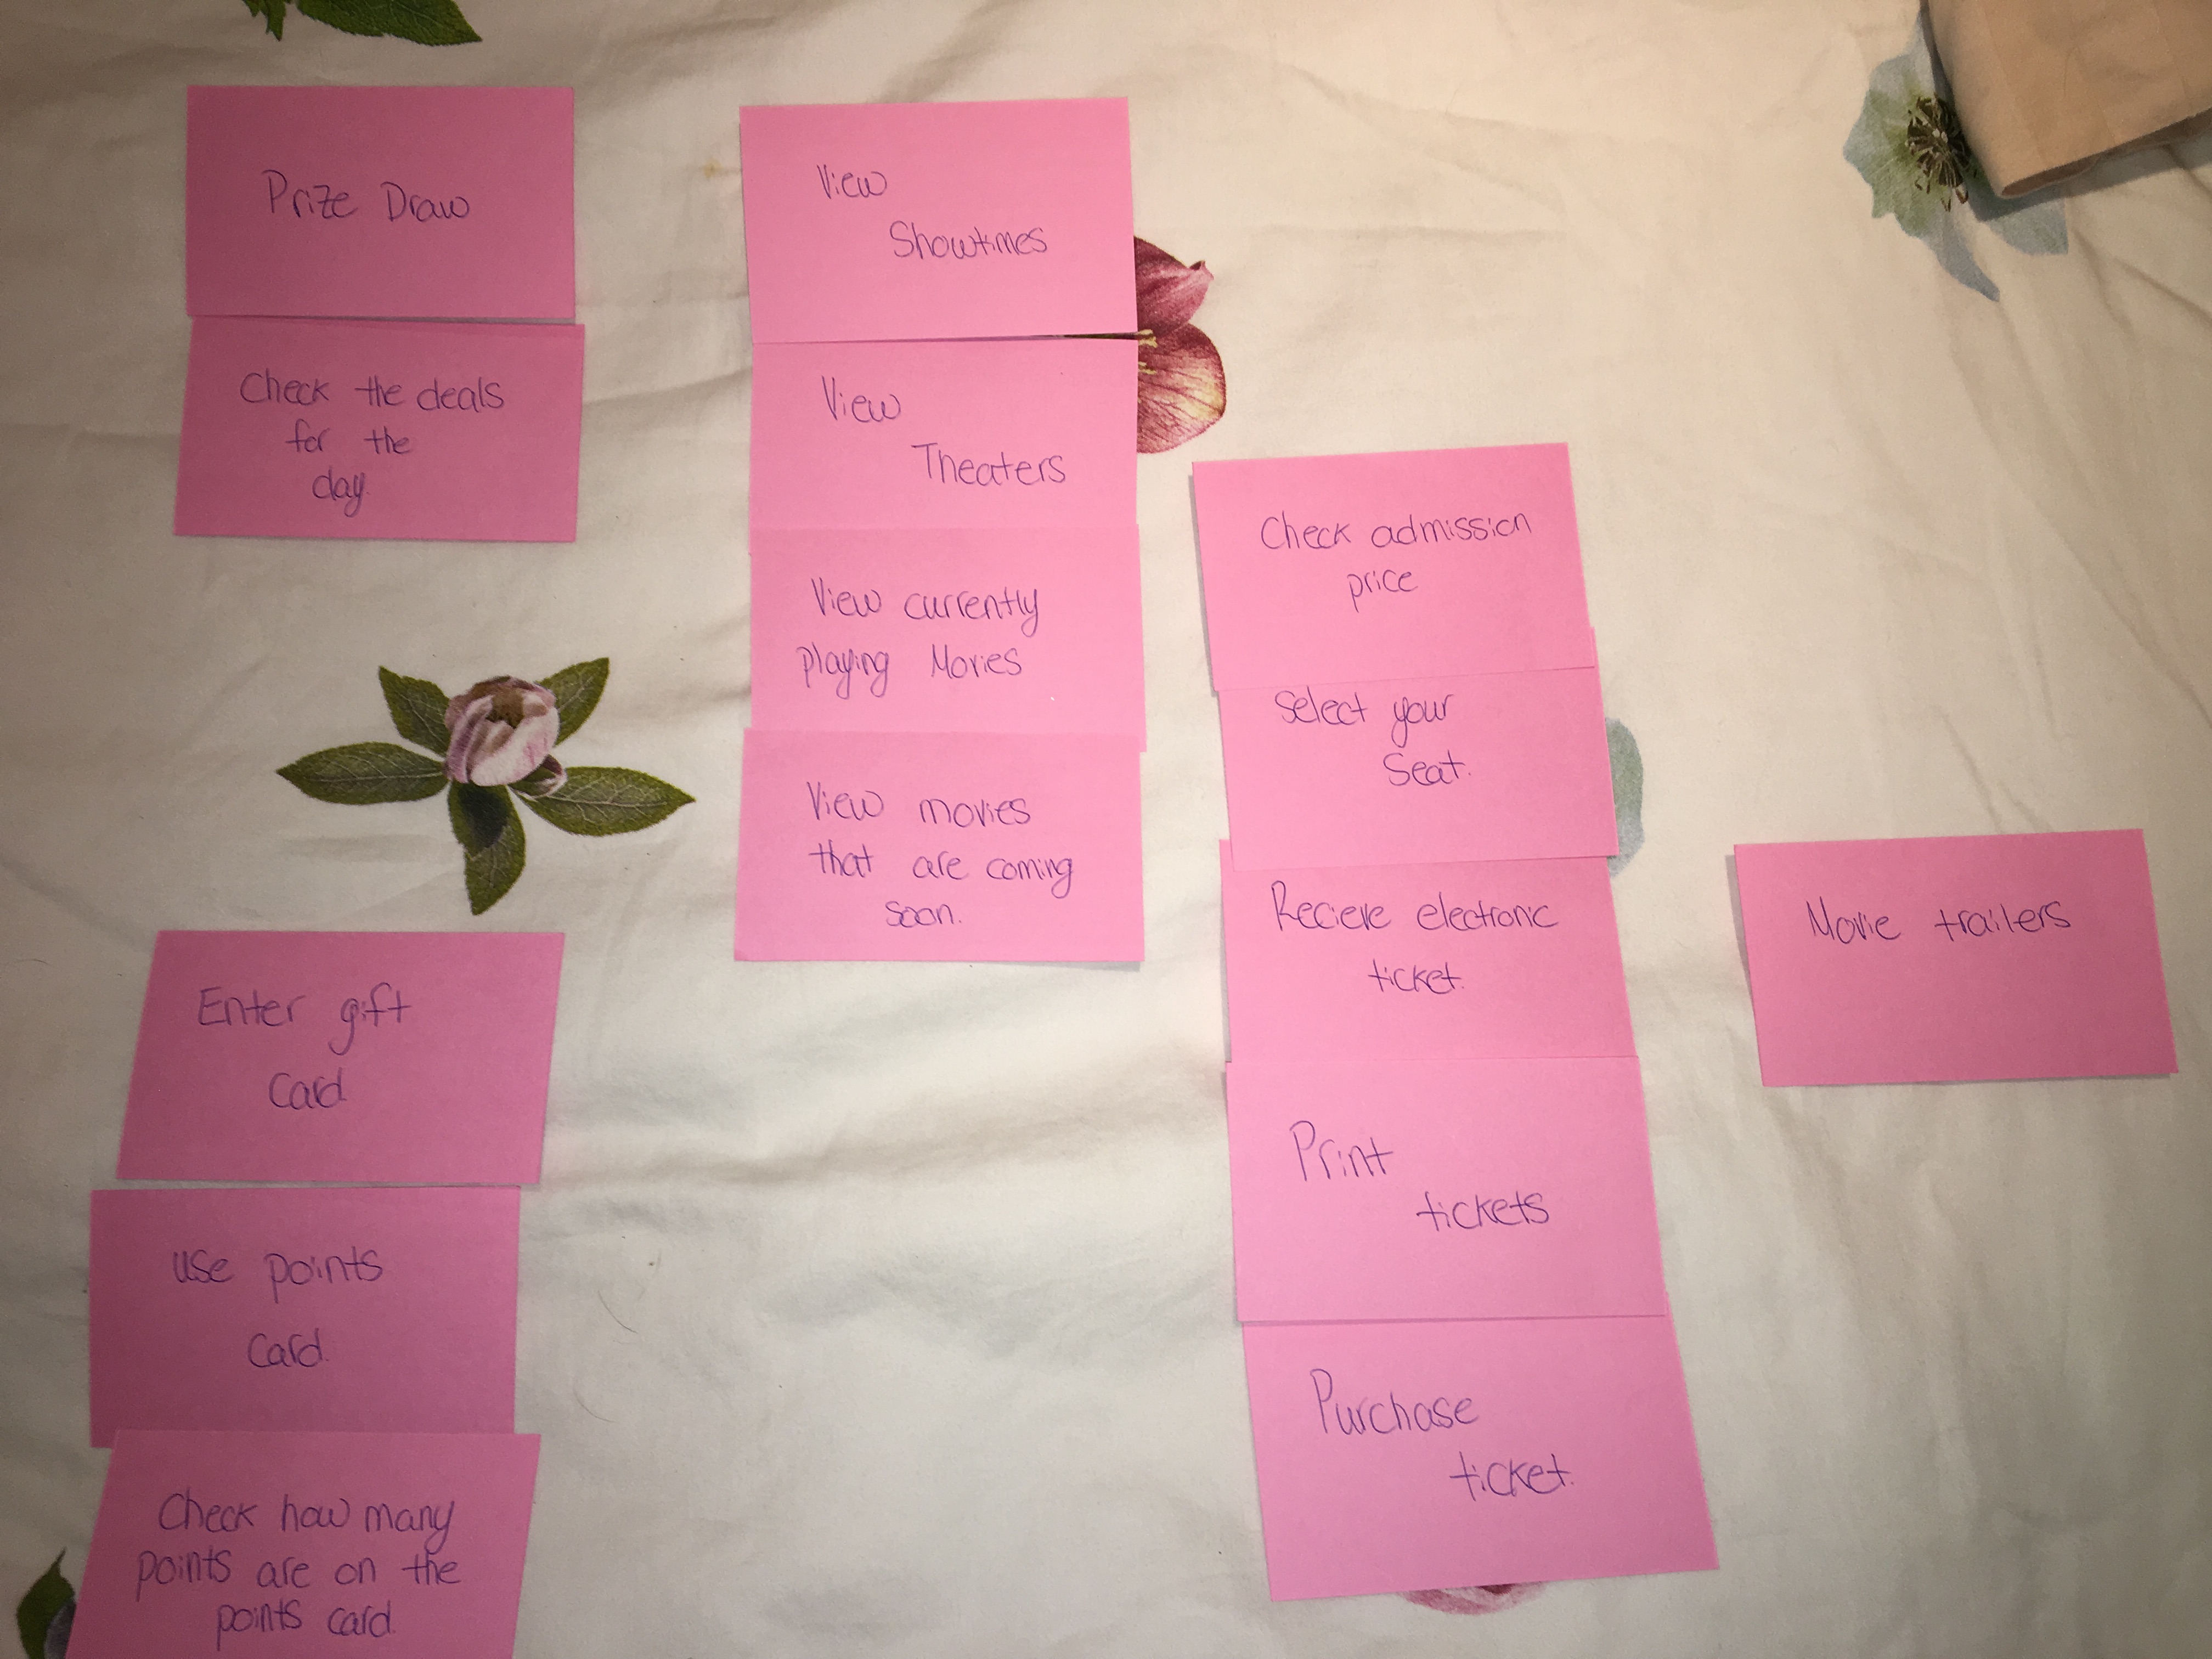 Prize Draw
Check the deals
for the
day.
Enter gift
Card
use points
Card.
Check how many
points are on the
points card.
View
Showtimes
View
Theaters
View currently
playing Movies
View movies
that are coming
soon.
Check admission
price
Select your
Seat.
Recieve electronic
ticket.
Print
tickets
Purchase
ticket.
Movie trailers